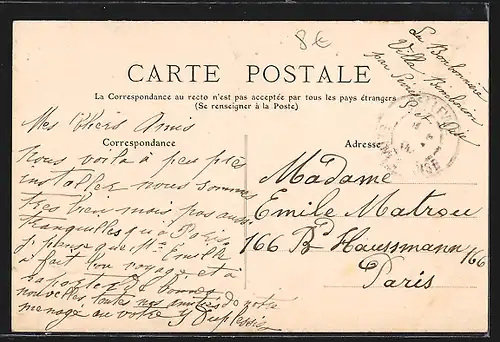 8€
La Bonbonnière
Villa
par
S. et Oise
CARTE POSTALE
La Correspondance au recto n'est pas acceptée par tous les pays étrangers
(Se renseigner à la Poste)
Correspondance
Adresse
Mes Chers Amis
Nous voilà à peu près
installer nous sommes
tres bien mais pas aussi
tranquilles qu'à Paris
je pense que Mr Emille
a fait bon voyage et a
rapporter de bonnes
nouvelles, toutes nos amitiés de notre
menage au votre Y Duplessier
Madame
Emile Matrou
166 Bd Haussmann 166
Paris